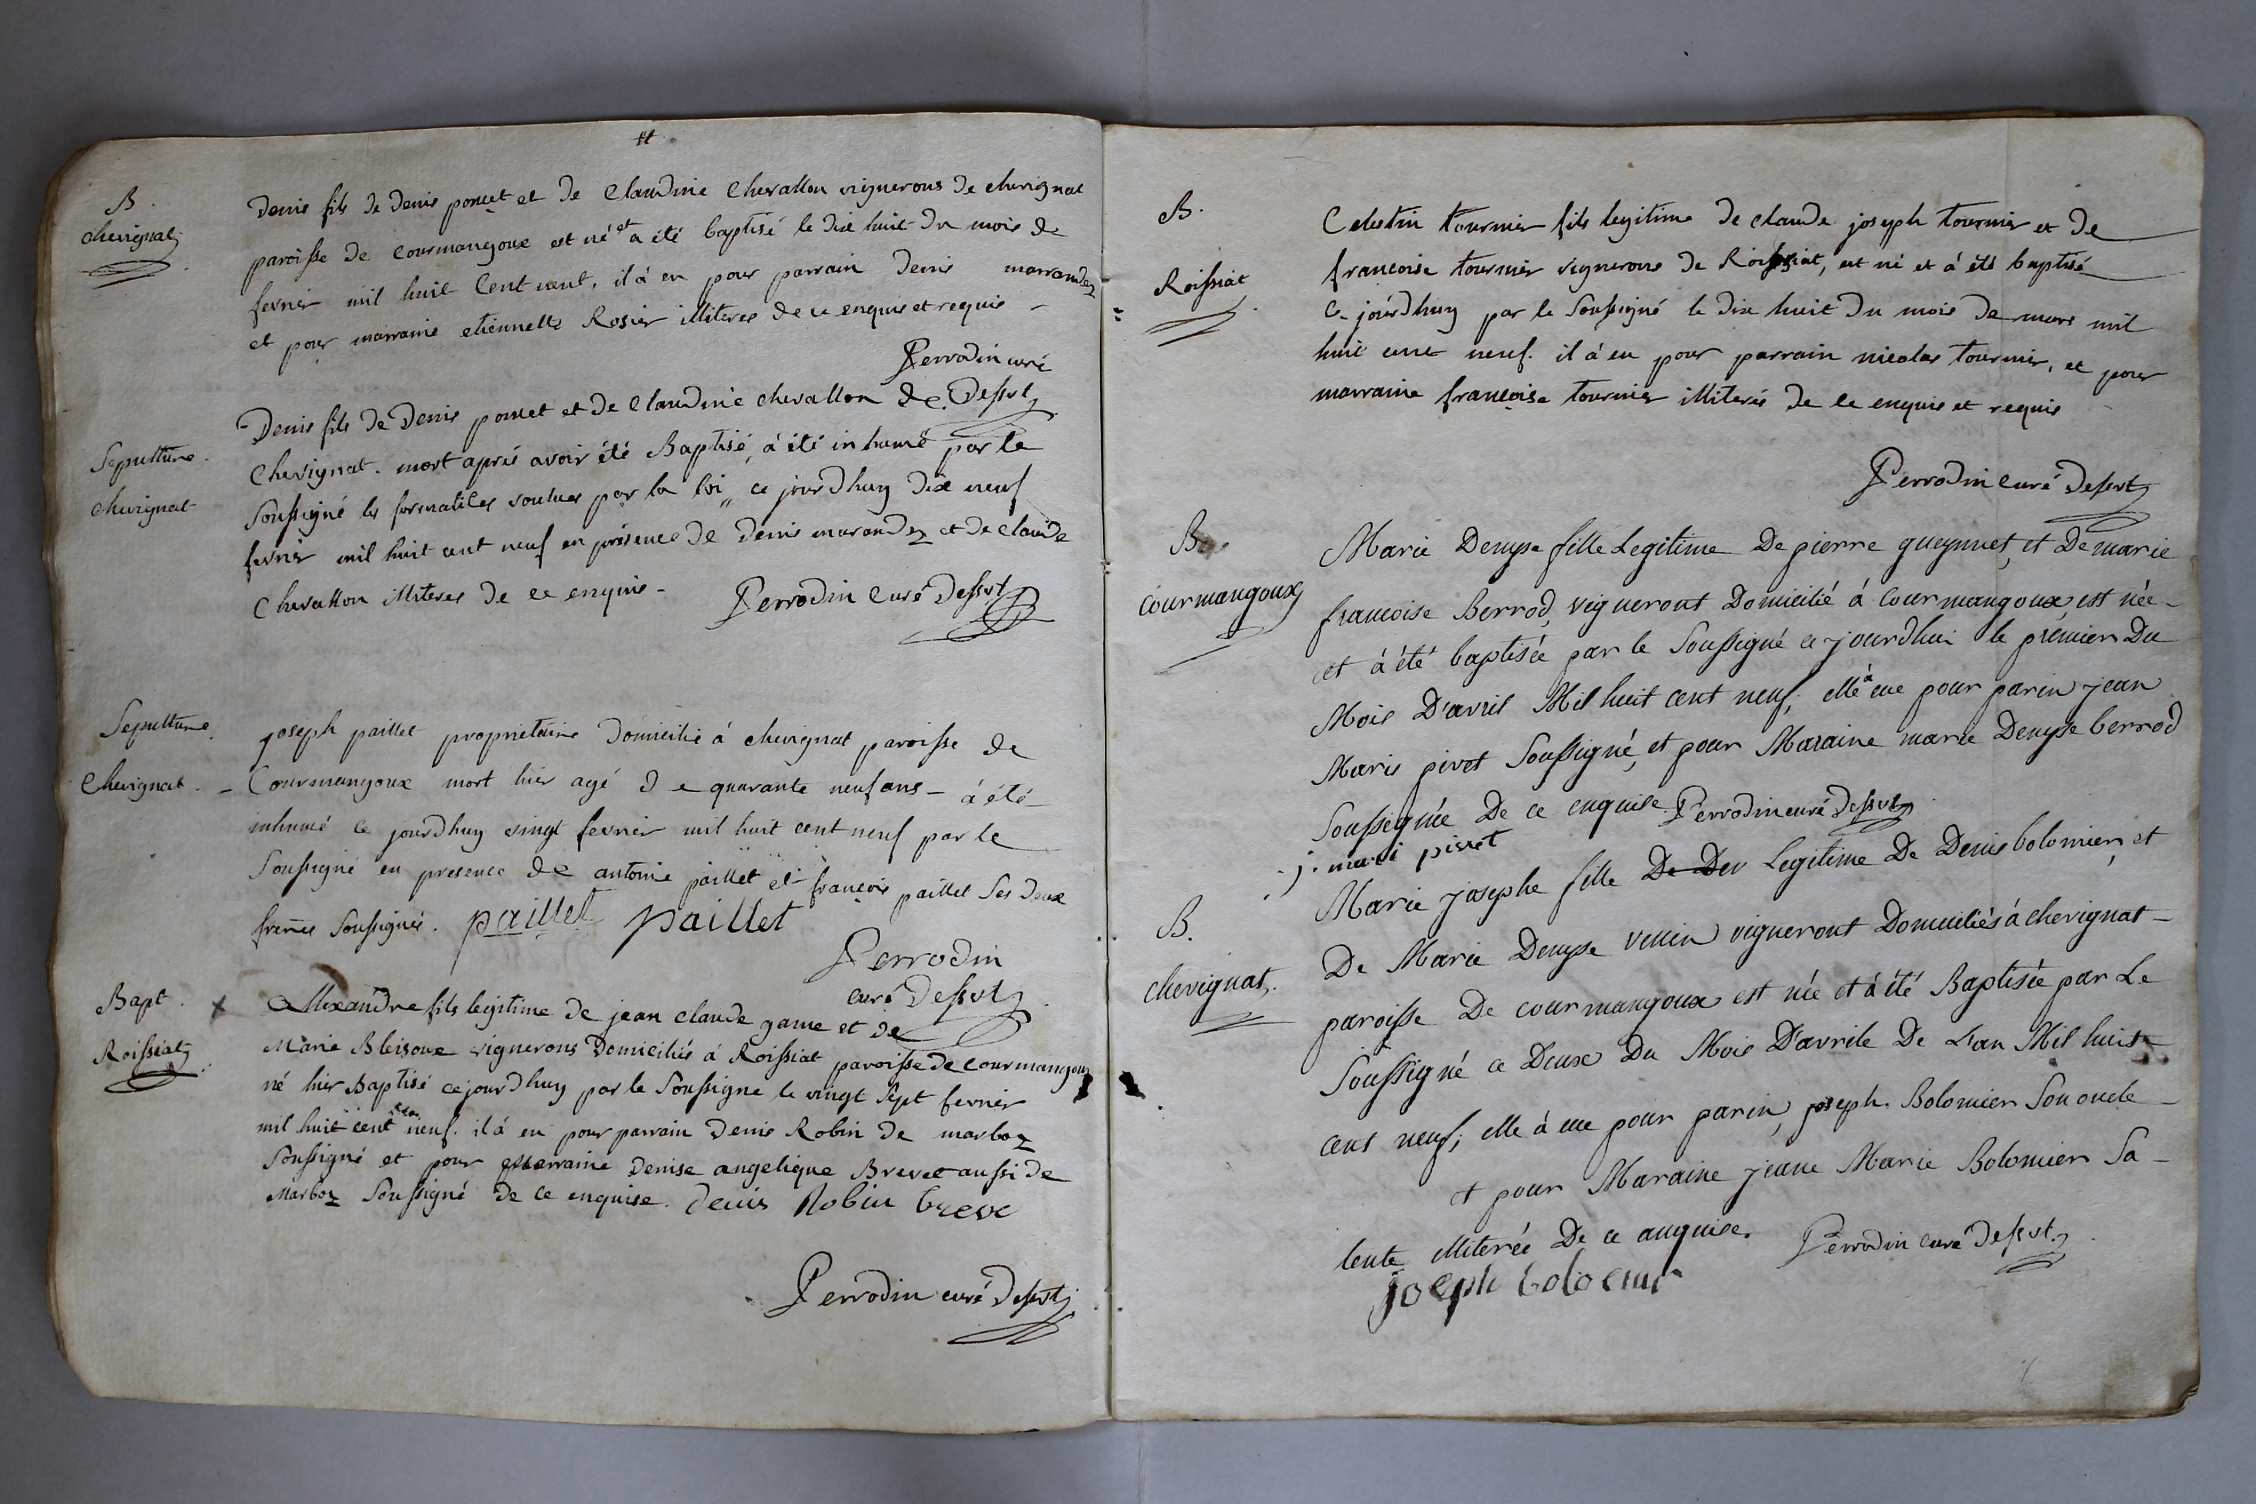 B.
chevignat
Denis fils de denis poncet et de Claudine Chevallon vignerons de chevignat
paroisse de courmangoux est né et a été baptisé le dix huit du mois de
fevrier mil huit Cent neuf. il á eu pour parrain denis marandez
et pour marraine etiennette Rosier illiteres de ce enquis et requis -
Perrodin curé
Dessvt
Sepulture.
chevignat
Denis fils de Denis poncet et de Claudine chevallon de
Chevignat. mort aprés avoir été Baptisé, á été inhumé par le
Soussigné les formalites voulues par la loi, ce jourdhuy dix neuf
fevrier mil huit cent neuf en présence de denis marandez et de Claude
Chevallon illiteres de ce enquis - Perrodin Curé Dessvt
Sepulture.
Chevignat. -
joseph paillet proprietaire domicilié á chevignat paroisse de
Courmangoux mort hier agé de quarante neuf ans - á été
inhumé ce jourdhuy vingt fevrier mil huit cent neuf par le
Soussigné en presence de antoine paillet et françois paillet Ses deux
freres Soussignés. paillet paillet
Perrodin
curé Dessvt
Bapt.
Roissiat
x Allixandre fils legitime de jean claude game et de
Marie Bleisoux vignerons domiciliés á Roissiat paroisse de courmangoux
né hier Baptisé cejourdhuy par le Soussigne le vingt Sept fevrier
mil huit cent neuf. il á eu pour parrain denis Robin de marboz
Soussigné et pour marraine denise angelique Brevet aussi de
Marboz Soussigné de ce enquise. denis Robin breve
Perrodin curé Dessvt
B.
Roissiat
Celestin tournier fils legitime de claude joseph tournier et de
françoise tournier vignerons de Roissiat, est né et á été baptisé
ce jourdhuy par le Soussigné le dix huit du mois de mars mil
huit cent neuf. il á eu pour parrain nicolas tournier, et pour
marraine françoise tournier illiterés de ce enquis et requis
Perrodin curé Dessvt
B.
Courmangoux
Marie Denyse fille Legitime De pierre gueynnet, et De marie
francoise Berrod, vigneront Domicilié á Courmangoux, est née -
et á été baptisée par le Soussigné ce jourdhui le premier Du
Mois D'avril Mil huit cent neuf, elle a eue pour parin jean
Marie pivet Soussigné, et pour Maraine marie Denyse berrod
Soussignée De ce enquise. Perrodin curé Dessvt
j. mari pivet
B.
chevignat.
Marie josephe fille De Dev Legitime De Denis bolomier, et
De Marie Denyse vuiin vigneront Domiciliés á chevignat -
paroisse De courmangoux est née et á été Baptisée par Le
Soussigné ce Deux Du Mois D'avrile De L'an Mil huit
cent neuf; elle á eue pour parin, joseph. Bolomier Son oncle -
et pour Maraine jeane Marie Bolomier Sa -
tente illiterée De ce anquise. Perrodin curé Dessvt.
joseph bolo